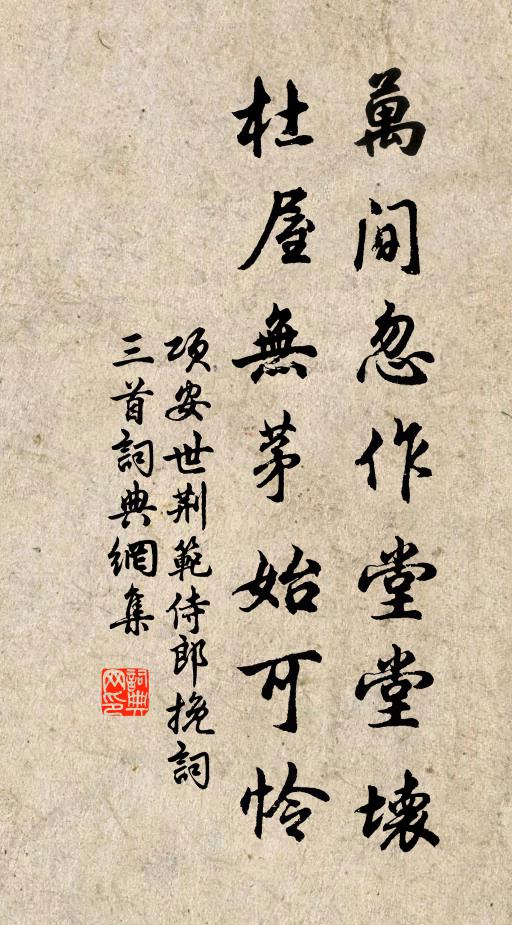 萬间忽作堂堂壞
杜屋無茅始可憐
项安世荆範侍郎挽詞
三首詞典網集
詞典
网印